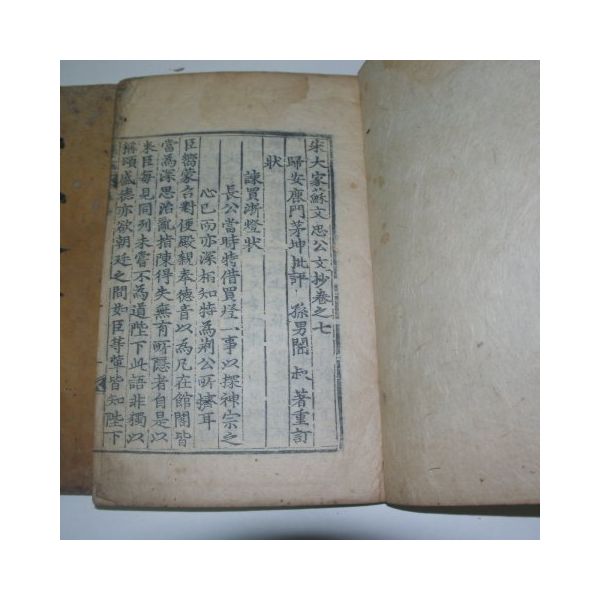 宋大家蘇文忠公文抄卷之七
歸安鹿門茅坤批評 孫男闇 叔著重訂
狀
諫買浙燈狀
長公當時特借買燈一事以探神宗之
心已而亦深相知特為荆公所擠耳
臣嚮蒙召對便殿親奉德音以為凡在館閣皆
當為深思治亂指陳得失無有所隱者自是以
來臣每見同列未嘗不為道陛下此語非獨以
稱頌盛德亦欲朝廷之間如臣等輩皆知陛下